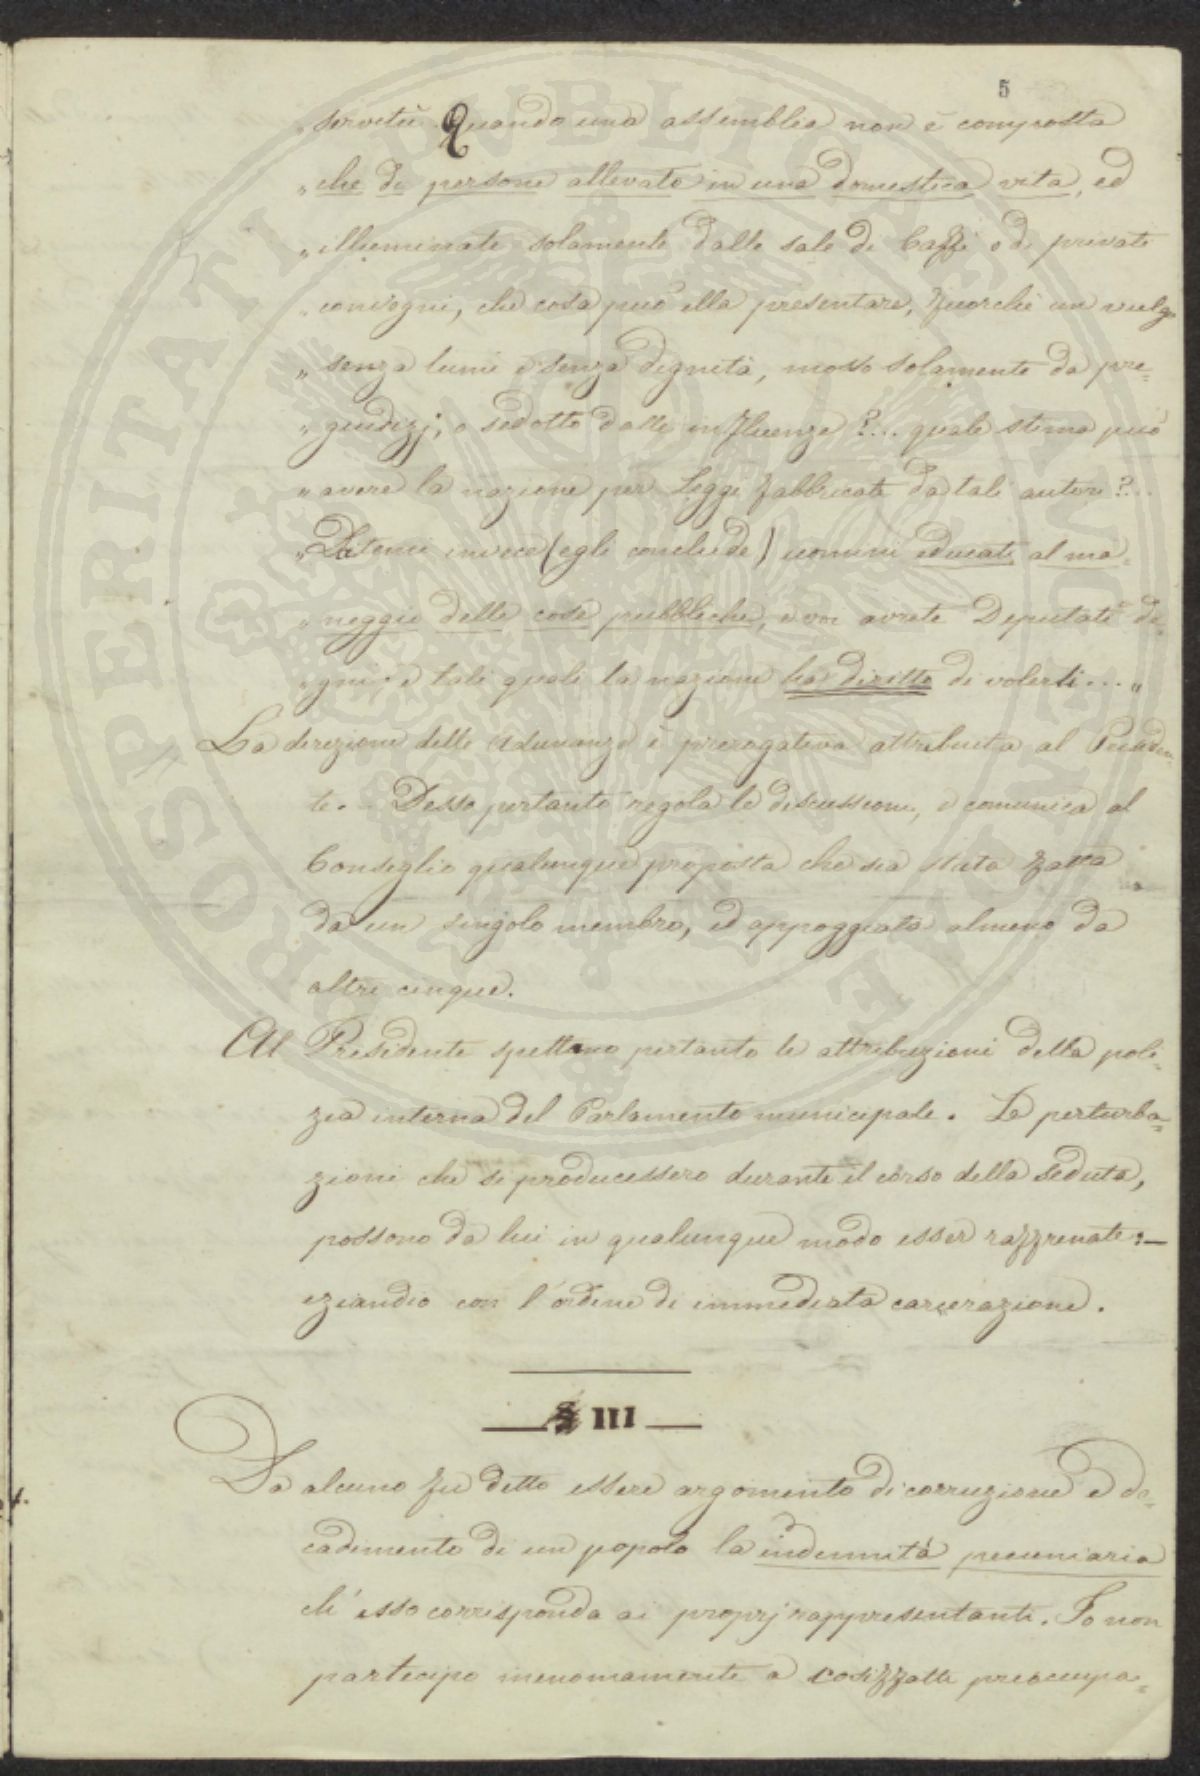 5
„ servitù. Quando una assemblea non è composta
„ che di persone allevate in una domestica vita, ed
„ illuminate solamente dalle sale di Caffè o di privati
„ convegni, che cosa può ella presentare, fuorchè un vulgo
„ senza lumi e senza dignità, mosso solamente da pre=
„ giudizj, o sedotto dalle influenze?... quale stima può
„ avere la nazione per Leggi fabbricate da tali autori?...
„ Datemi invece (egli conclude) uomini educati al ma=
„ neggio delle cose pubbliche, e voi avrete Deputati de=
„ gni e tali quali la nazione ha diritto di volerli.... „
La direzione delle Adunanze è prerogativa attribuita al Presiden=
te. Desso pertanto regola le discussioni, e comunica al
Consiglio qualunque proposta che sia stata fatta
da un singolo membro, ed appoggiata almeno da
altri cinque.
Al Presidente spettano pertanto le attribuzioni della poli=
zia interna del Parlamento municipale. Le perturba=
zioni che si producessero durante il corso della seduta,
possono da lui in qualunque modo esser raffrenate: —
eziandio con l'ordine di immediata carcerazione.
§ III
Da alcuno fu detto essere argomento di corruzione e de=
cadimento di un popolo la indennità pecuniaria
ch'esso corrisponda ai proprj rappresentanti. Io non
partecipo menomamente a cosiffatte preoccupa=
PROSPERITATI PUBLICAE